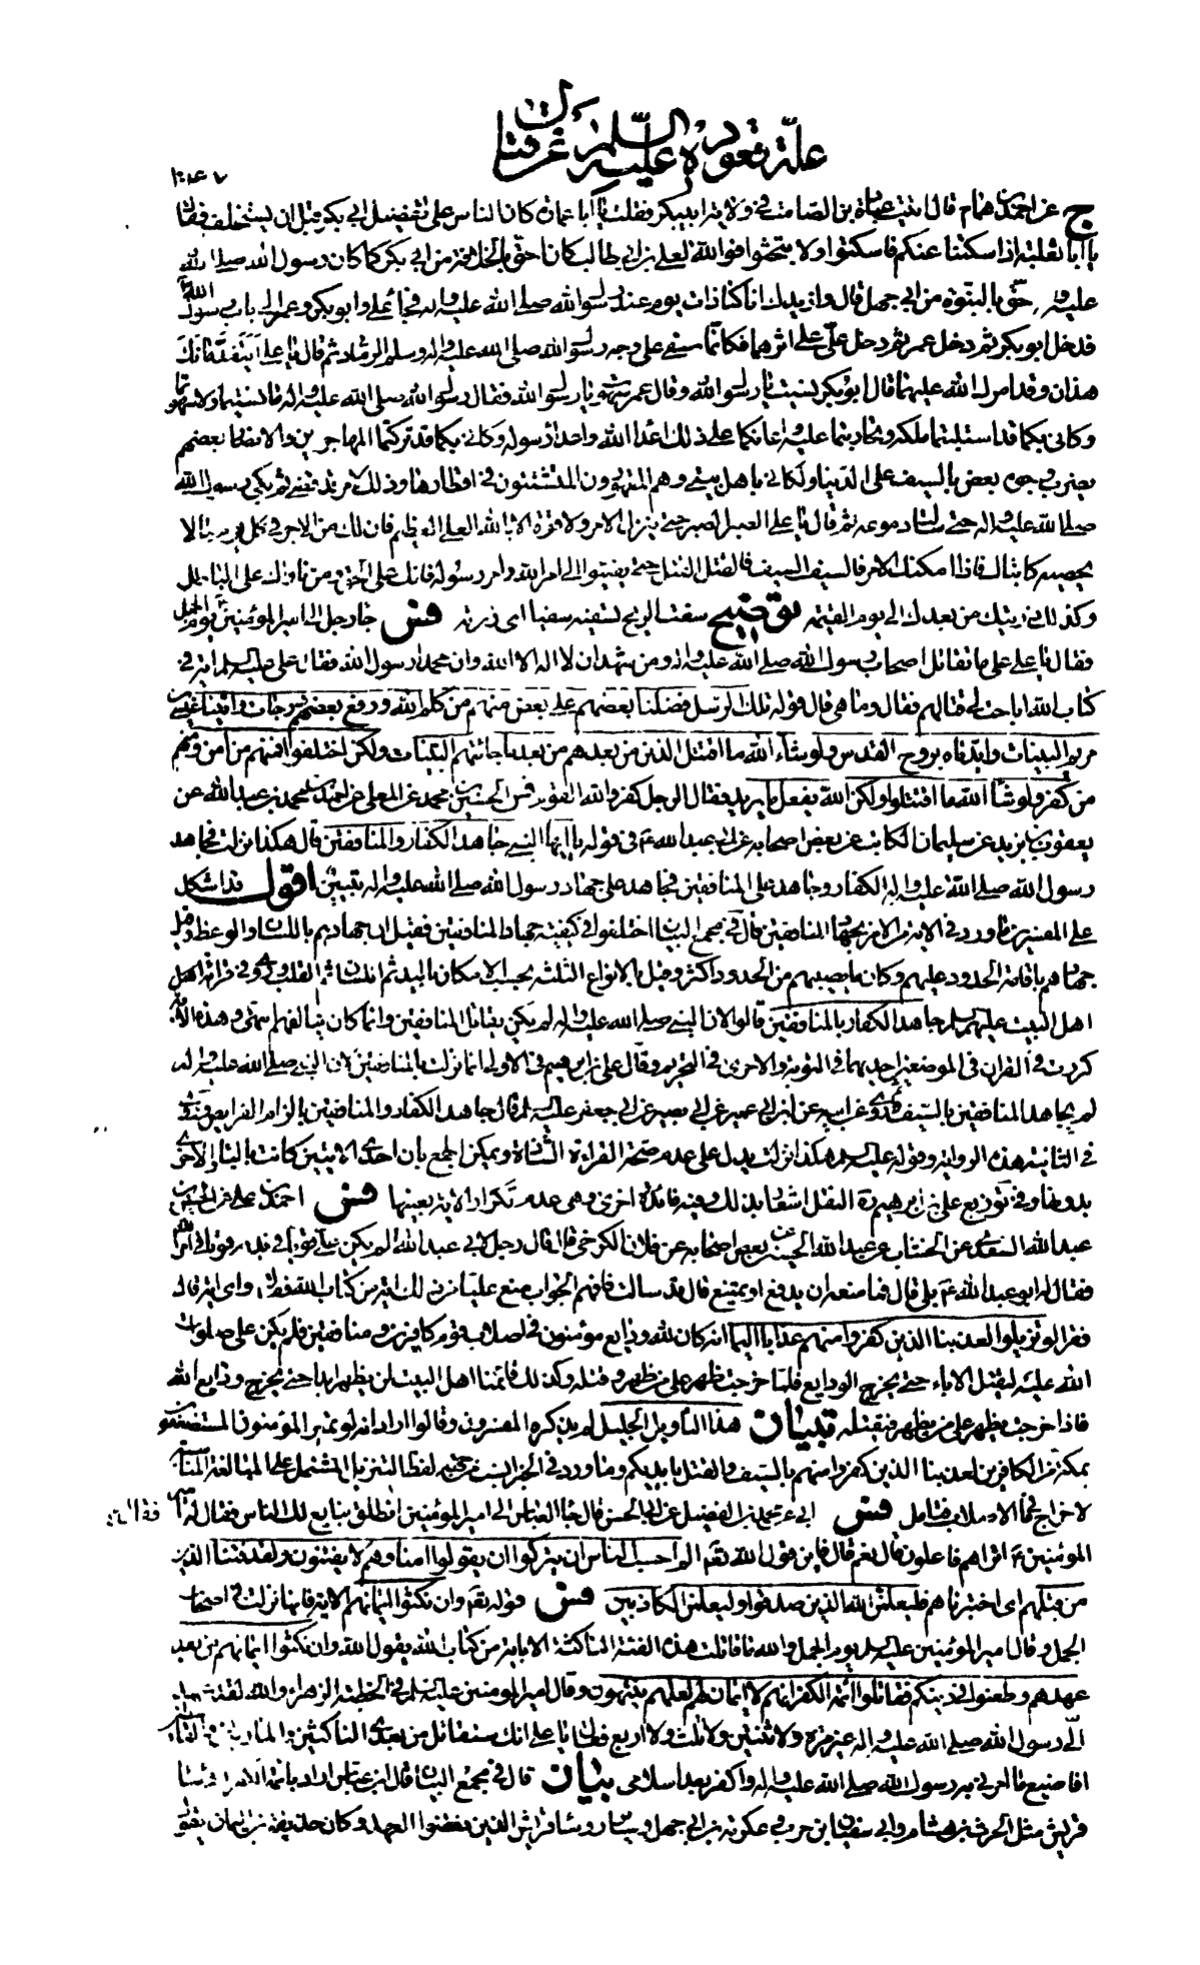 علّة قعوده عليه السلم عن قتال
ج عن احمد بن همام قال اتيت عبادة بن الصامت في ولاية ابي بكر فقلت يا أبا عمارة كان الناس على تفضيل ابي بكر قبل ان يستخلف فقال
يا أبا ثعلبة اذا سكتنا عنكم فاسكتوا ولا تبحثوا فوالله لعلي بن ابي طالب كان احق بالخلافة من ابي بكر كما كان رسول الله صلى الله
عليه واله احق بالنبوة من ابي جهل قال وازيدك انا كنا ذات يوم عند رسول الله صلى الله عليه واله فجاء علي وابو بكر وعمر الى باب رسول الله
فدخل ابو بكر ثم دخل عمر ثم دخل علي على اثرهما فكانما سفي على وجه رسول الله صلى الله عليه واله وسلم الرماد ثم قال يا علي أيتقدمانك
هذان وقد امرك الله عليهما قال ابو بكر نسيت يا رسول الله وقال عمر سهوت يا رسول الله فقال رسول الله صلى الله عليه واله ما نسيتما ولا سهوتما
وكاني بكما قد استلبتما ملكه وتحاربتما عليه واعانكما على ذلك اعداء الله واعداء رسوله وكاني بكما قد تركتما المهاجرين والانصار بعضهم
يضرب وجوه بعض بالسيف على الدنيا ولكاني باهل بيتي وهم المقهورون المتشتتون في اقطارها وذلك لامر قد قضي ثم بكى رسول الله
صلى الله عليه واله حتى سالت دموعه ثم قال يا علي الصبر الصبر حتى ينزل الامر ولا قوة الا بالله العلي العظيم فان لك من الاجر في كل يوم ما لا
يحصيه كاتباك فاذا امكنك الامر فالسيف السيف فالقتل القتل حتى يفيئوا الى امر الله وامر رسوله فانك على الحق ومن ناواك على الباطل
وكذلك ذريتك من بعدك الى يوم القيمة توضيح سفت الريح تسفيه سفيا اي ذرته فس جاء رجل الى امير المؤمنين يوم الجمل
فقال يا علي على ما تقاتل اصحاب رسول الله صلى الله عليه واله ومن شهد ان لا اله الا الله وان محمدا رسول الله فقال علي عليه السلم اية في
كتاب الله اباحت لي قتالهم فقال وما هي قال قوله تلك الرسل فضلنا بعضهم على بعض منهم من كلم الله ورفع بعضهم درجات واتينا عيسى بن
مريم البينات وايدناه بروح القدس ولو شاء الله ما اقتتل الذين من بعدهم من بعد ما جائتهم البينات ولكن اختلفوا فمنهم من امن ومنهم
من كفر ولو شاء الله ما اقتتلوا ولكن الله يفعل ما يريد فقال الرجل كفر والله القوم فس الحسين بن محمد عن المعلى عن احمد بن محمد بن عبد الله عن
يعقوب بن يزيد عن سليمان الكاتب عن بعض اصحابه عن ابي عبد الله ع في قوله يا ايها النبي جاهد الكفار والمنافقين قال هكذا نزلت فجاهد
رسول الله صلى الله عليه واله الكفار وجاهد علي المنافقين فجاهد علي جهاد رسول الله صلى الله عليه واله تبيين اقول قد اشكل
على المفسرين ما ورد في الاية من الامر بجهاد المنافقين قال في مجمع البيان اختلفوا في كيفية جهاد المنافقين فقيل ان جهادهم باللسان والوعظ وقيل
جهادهم باقامة الحدود عليهم وكان ما يصيبهم من الحدود اكثر وقيل بالانواع الثلثة بحسب الامكان باليد ثم اللسان ثم القلب وروي في قراءة اهل
اهل البيت عليهم السلم جاهد الكفار بالمنافقين قالوا لان النبي صلى الله عليه واله لم يكن يقاتل المنافقين وانما كان يتالفهم انتهى وهذه الاية
كررت في القران في الموضعين احديهما في التوبة والاخرى في التحريم وقال علي بن ابرهيم في الاولى انما نزلت بالمنافقين لان النبي صلى الله عليه واله
لم يجاهد المنافقين بالسيف ثم روى عن ابيه عن ابن ابي عمير عن ابي بصير عن ابي جعفر عليه السلم قال جاهد الكفار والمنافقين بالزام الفرايض وروى
في الثانية هذه الرواية وقوله عليه السلم هكذا نزلت يدل على عدم صحة القراءة الشاذة ويمكن الجمع بان احدى الايتين كانت بالباء والاخرى
بدونها وفي توزيع علي بن ابرهيم ره النقل اشعار بذلك وفيه فائدة اخرى وهي عدم تكرار الاية بعينها فس احمد بن علي عن الحسين بن
عبد الله السعدي عن الخشاب عن عبد الله بن الحسين عن بعض اصحابه عن فلان الكرخي قال قال رجل لابي عبد الله الم يكن علي قويا في بدنه قويا في امر الله
فقال له ابو عبد الله ع بلى قال فما منعه ان يدفع او يمتنع قال قد سالت فافهم الجواب منع عليا من ذلك اية من كتاب الله فقال واي اية قال
فقرا لو تزيلوا لعذبنا الذين كفروا منهم عذابا اليما انه كان لله ودايع مؤمنون في اصلاب قوم كافرين ومنافقين فلم يكن علي صلوات
الله عليه ليقتل الاباء حتى يخرج الودايع فلما خرجت ظهر على من ظهر وقتله وكذلك قائمنا اهل البيت لن يظهر ابدا حتى يخرج ودايع الله
فاذا خرجت يظهر على من يظهر فيقتله تبيان هذا التاويل الجليل لم يذكره المفسرون وقالوا اراد انه لو تميز المؤمنون المستضعفون
بمكة من الكافرين لعذبنا الذين كفروا منهم بالسيف والقتل بايديكم وما ورد في الخبر انسب من جهة لفظ التنزيل المشتمل على المبالغة المناسبة
لاخراج ما في الاصلاب فتامل فس ابي عن محمد بن الفضيل عن ابي الحسن قال جاء العباس الى امير المؤمنين انطلق نبايع لك الناس فقال له امير
فقال
المؤمنين ع اتراهم فاعلون قال نعم قال فاين قول الله تعم الم احسب الناس ان يتركوا ان يقولوا امنا وهم لا يفتنون ولقد فتنا الذين
من قبلهم اي اختبرناهم فليعلمن الله الذين صدقوا وليعلمن الكاذبين فس قوله تعم وان نكثوا ايمانهم الاية فانها نزلت في اصحاب
الجمل وقال امير المؤمنين عليه السلم يوم الجمل والله ما قاتلت هذه الفئة الناكثة الا باية من كتاب الله يقول الله وان نكثوا ايمانهم من بعد
عهدهم وطعنوا في دينكم فقاتلوا ائمة الكفر انهم لا ايمان لهم لعلهم ينتهون وقال امير المؤمنين عليه السلم في الخطبة الزهراء والله لقد عهد
الي رسول الله صلى الله عليه واله غير مرة ولا ثنتين ولا ثلث ولا اربع فقال يا علي انك ستقاتل من بعدي الناكثين والمارقين والقاسطين
افاضيع ما امرني به رسول الله صلى الله عليه واله واكفر بعد اسلامي بيان قال في مجمع البيان قال ابن عباس اراد بائمة الكفر رؤساء
قريش مثل الحرث بن هشام وابي سفيان بن حرب وعكرمة بن ابي جهل وسائر رؤساء قريش الذين نقضوا العهد وكان حذيفة بن اليمان يقول